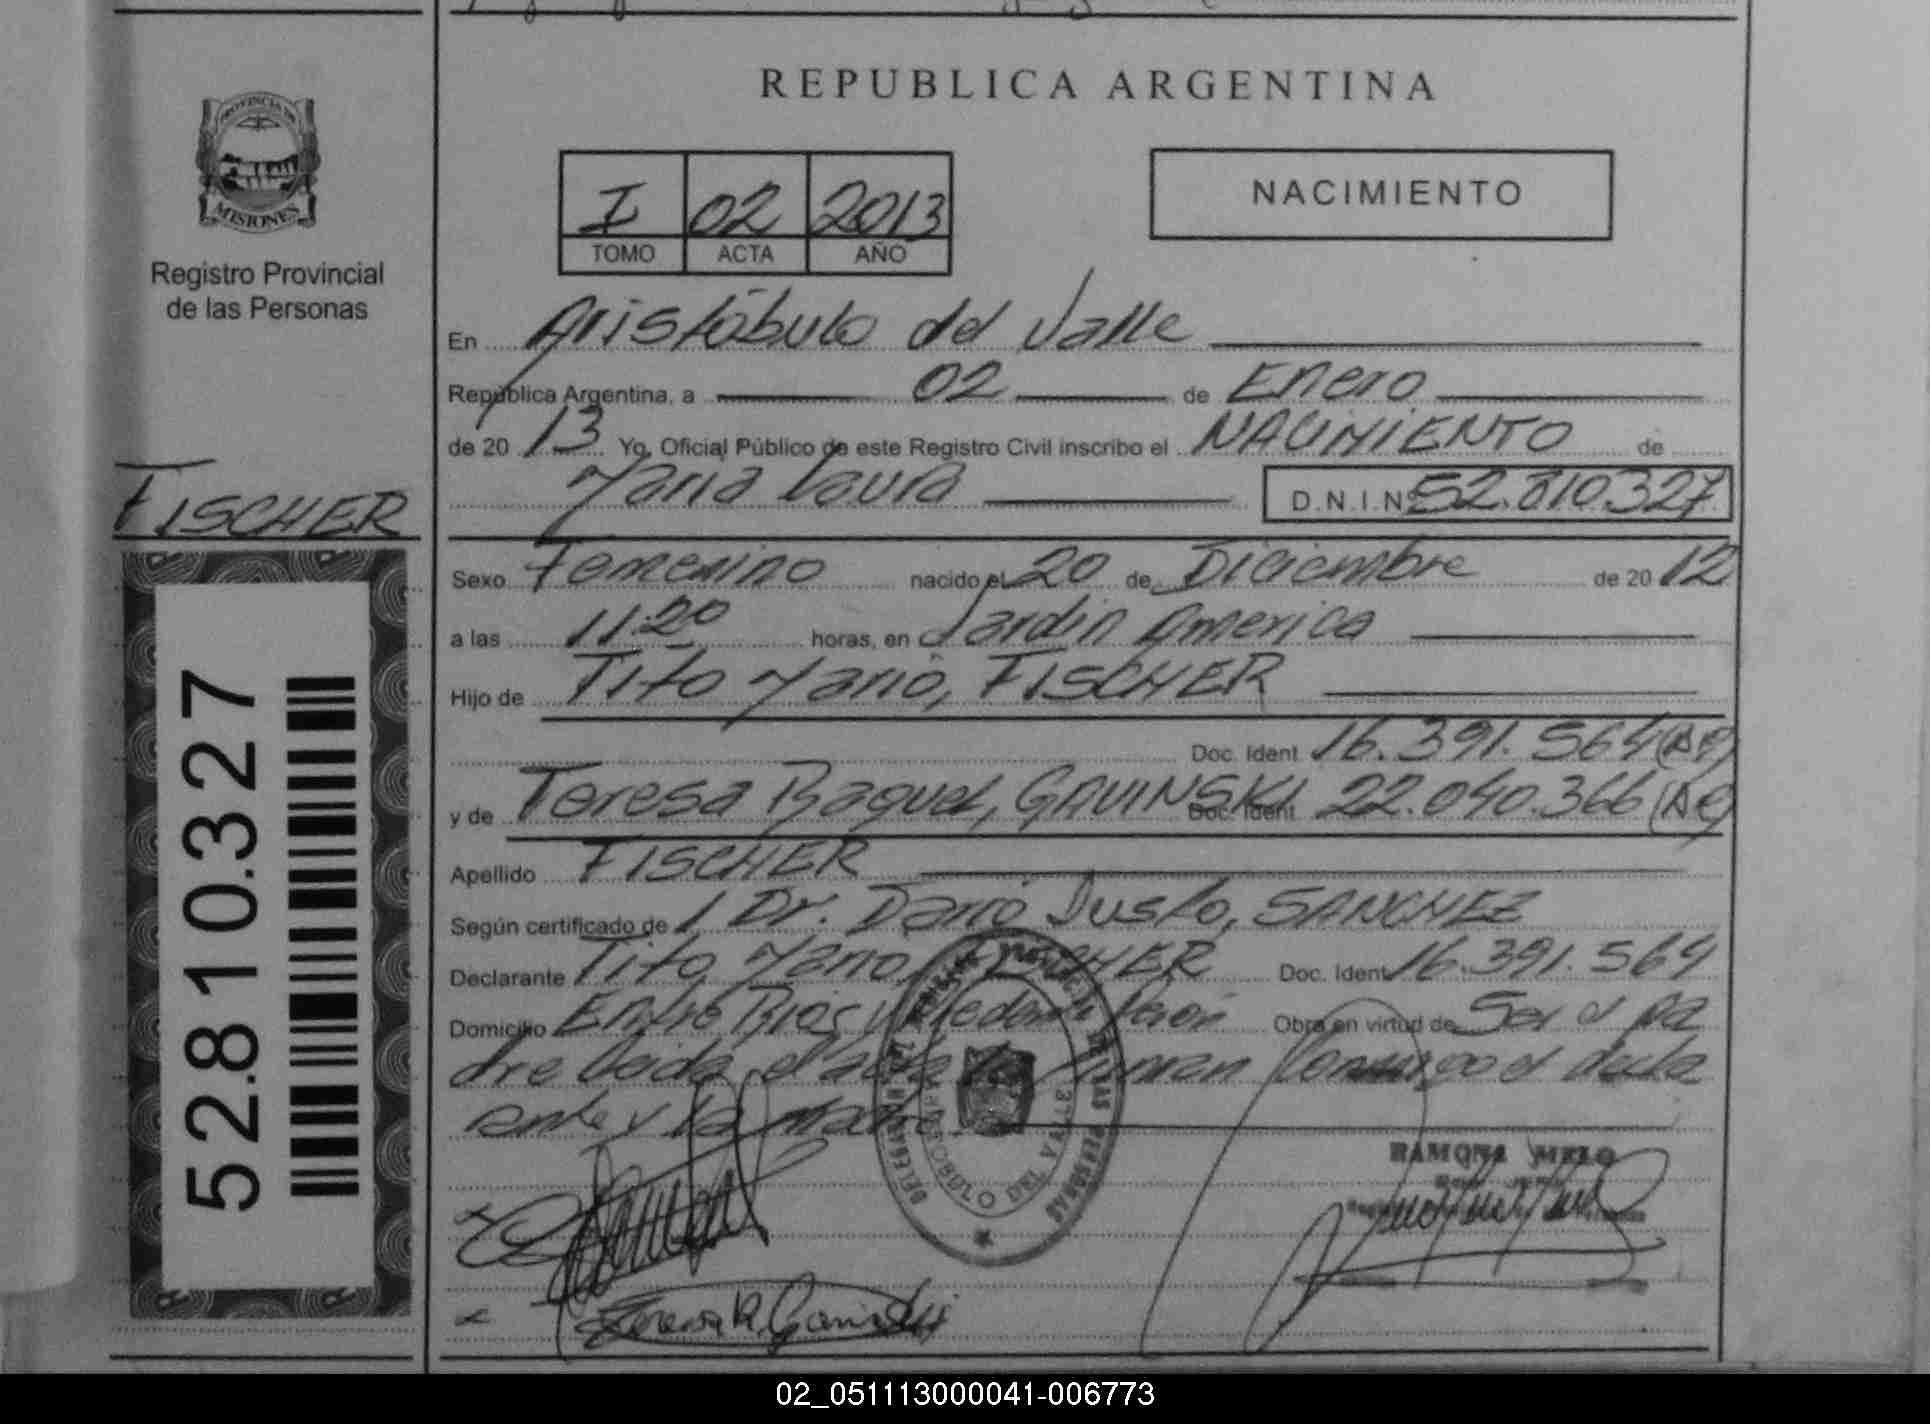 REPUBLICA ARGENTINA
PROVINCIA DE
MISIONES
Registro Provincial
de las Personas
I 02 2013
TOMO ACTA AÑO
NACIMIENTO
En Aristóbulo del Valle
República Argentina, a 02 de Enero
de 20 13 Yo, Oficial Público de este Registro Civil inscribo el NACIMIENTO de
Maria Laura D.N.I.Nº 52.810.327
FISCHER
Sexo Femenino nacido el 20 de Diciembre de 20 12
a las 11:20 horas, en Jardin America
Hijo de Tito Mario, FISCHER
Doc. Ident 16.391.564 (AR)
y de Teresa Raquel, GAVINSKI Doc. Ident 22.040.366 (AR)
Apellido FISCHER
Según certificado de Dr. Dario Justo, SANCHEZ
Declarante Tito Mario, FISCHER Doc. Ident 16.391.564
Domicilio Entre Rios y Obra en virtud de Ser el pa
dre Leida el acta la firman Conmigo el decla
rante y la madre.
52.810.327
DELEGACION DE LAS PERSONAS
ARISTOBULO DEL VALLE
RAMONA MELO
Teresa R. Gavinski
02_051113000041-006773